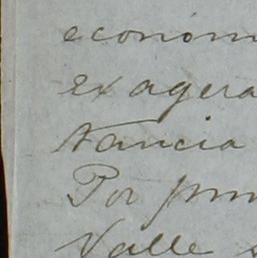 econom
exagera
tancia
Por prim
Valle s